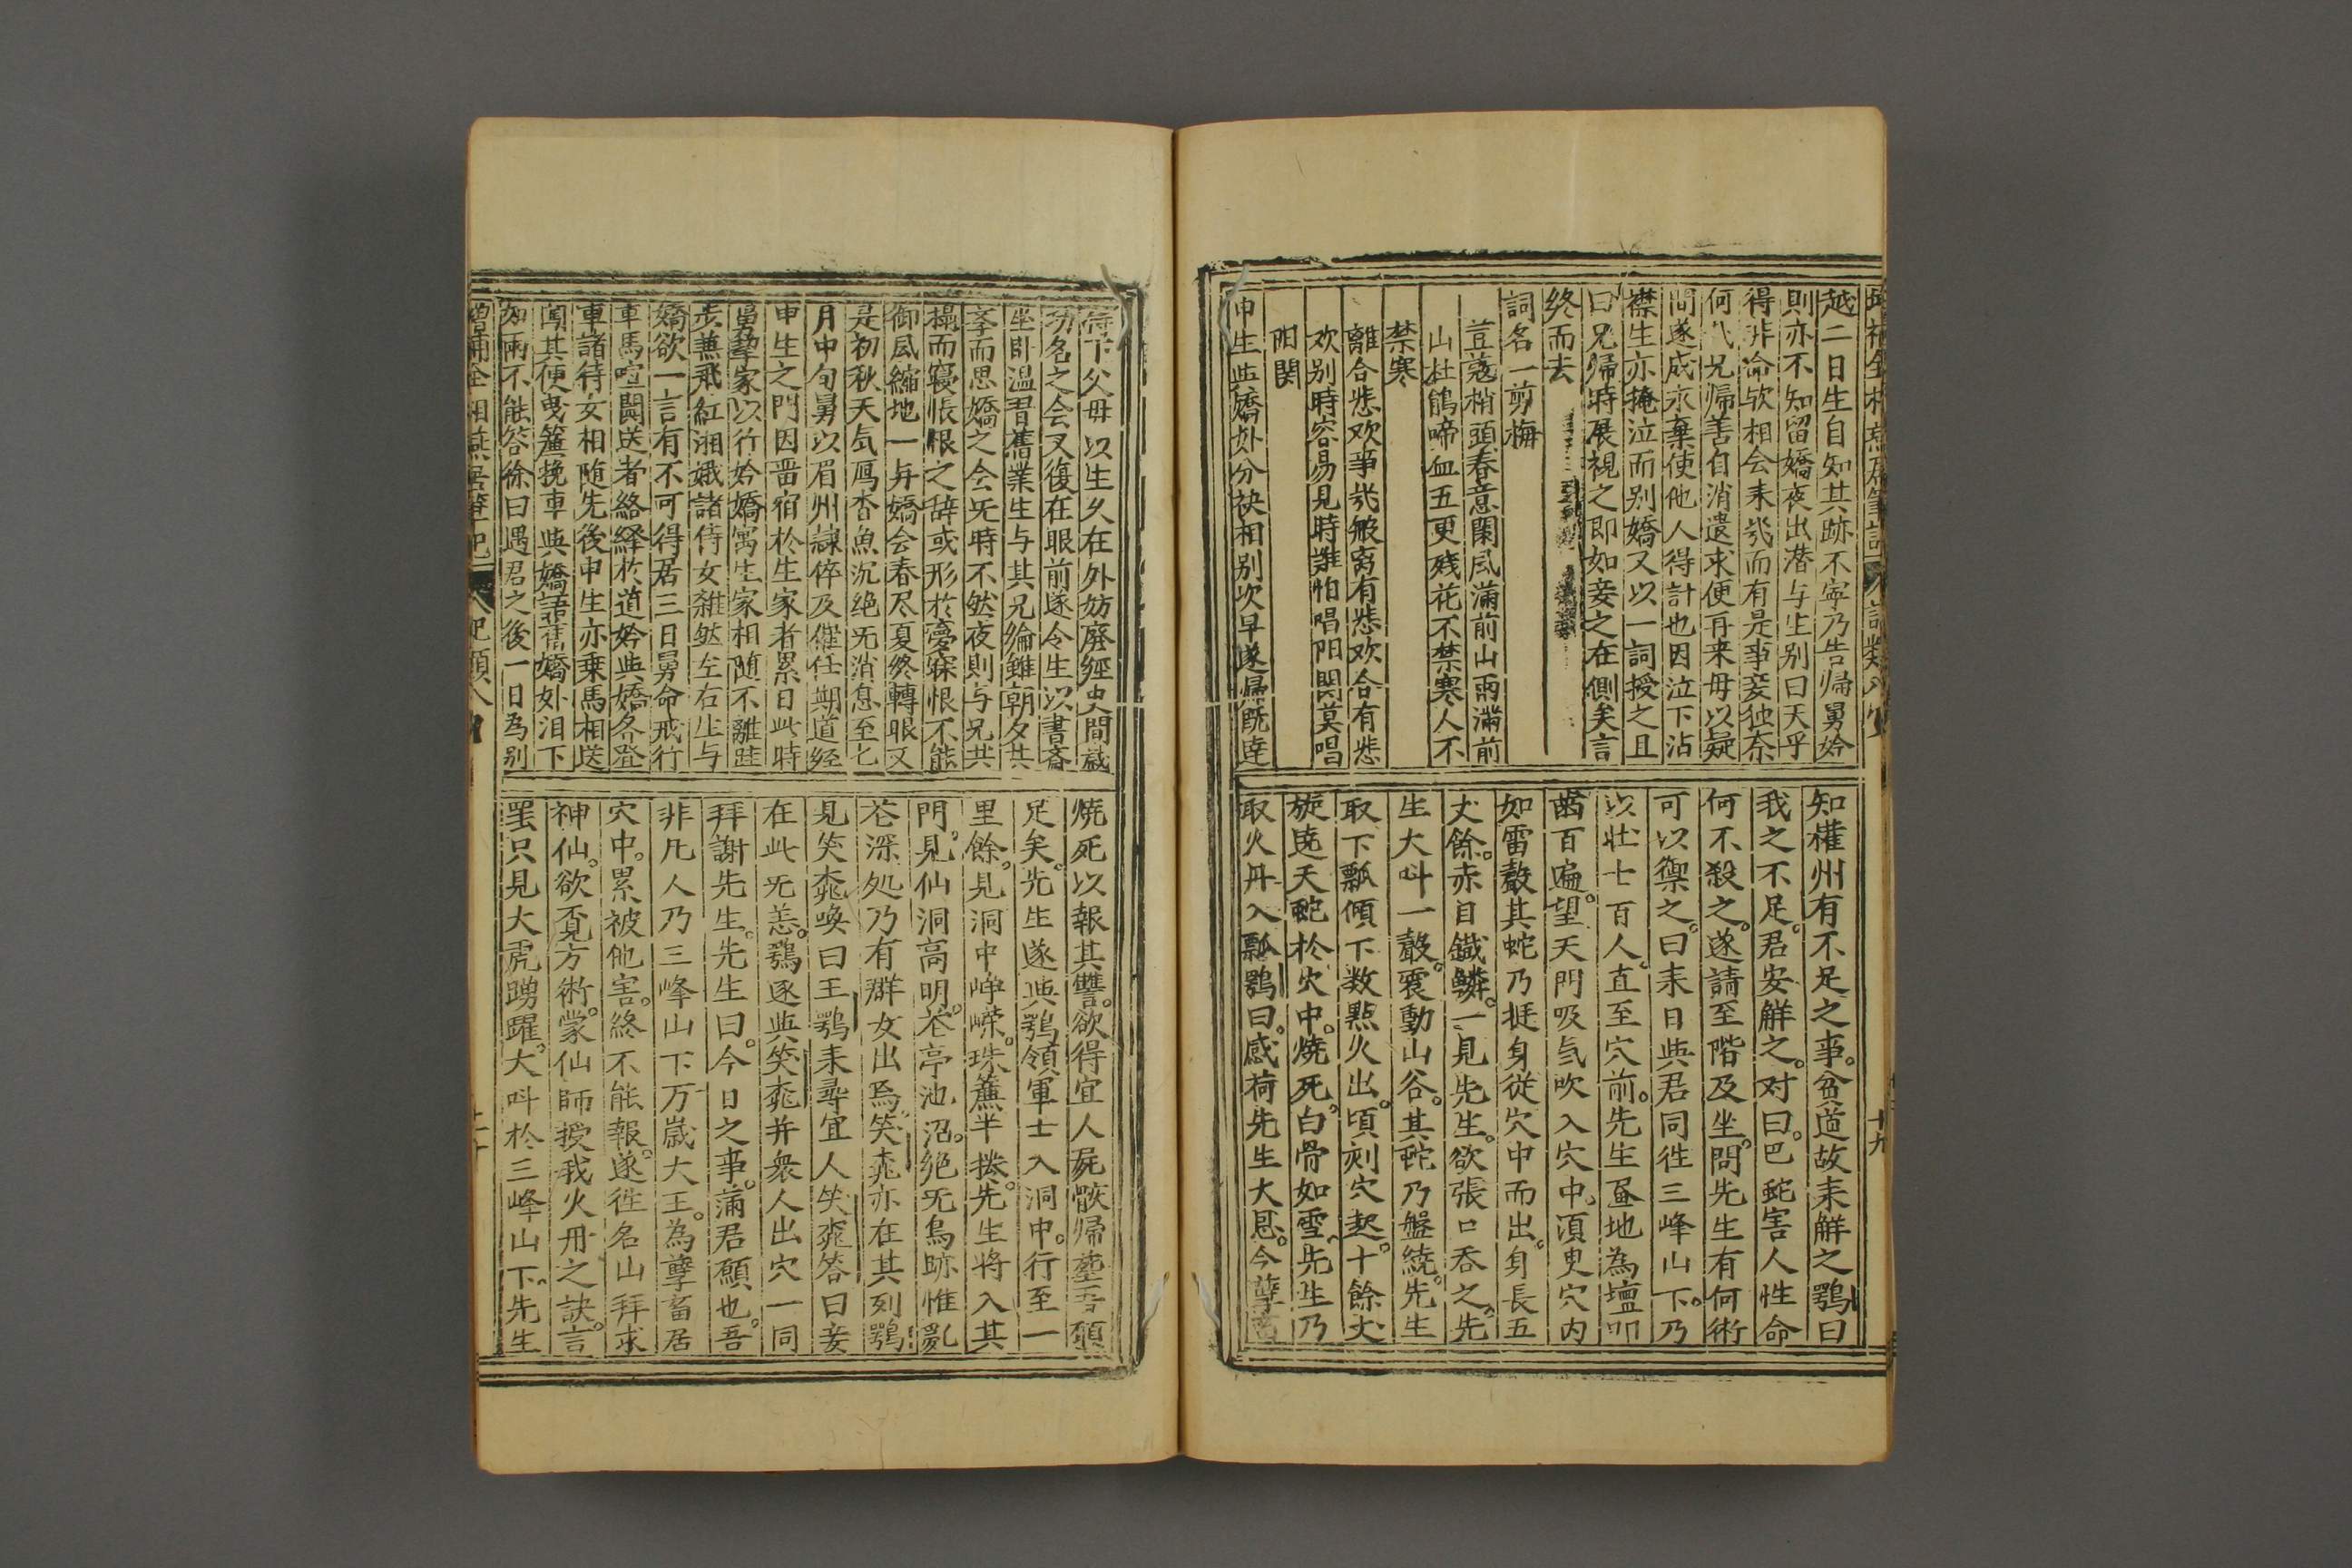 越二日生自知其跡不寧乃告帰舅妗
則亦不知留嬌夜出潜与生别曰天乎
得非命欤相会未㡬而有是事妾独奈
何哉兄帰善自消遣求便再来毋以疑
間遂成永棄使他人得計也因泣下沾
襟生亦掩泣而别嬌又以一詞授之且
曰兄帰時展視之即如妾之在側矣言
終而去
詞名一剪梅
荳蔻梢頭春意闌風滿前山雨滿前
山杜鵑啼血五更残花不禁寒人不
禁寒
離合悲欢事㡬般离有悲欢合有悲
欢别時容易見時難怕唱阳関莫唱
阳関
申生与嬌娘分袂相别次早遂帰既達
知權州有不足之事。貧道故来解之鶚曰
我之不足。君安解之。对曰。巴蛇害人性命
何不殺之。遂請至階及坐。問先生有何術
可以禦之。曰来日與君同徃三峰山下。乃
以壮士百人。直至穴前。先生画地為壇叩
齒百遍。望天門吸気吹入穴中。湏臾穴内
如雷聲其蛇乃挺身從穴中而出。身長五
丈餘。赤目鐵鱗。一見先生。欲張口吞之。先
生大呌一聲。震動山谷。其蛇乃盤繞。先生
取下瓢傾下数點火出。頃刻穴起。十餘丈
旋遶天蛇於穴中。燒死。白骨如雪。先生乃
取火丹入瓢鶚曰。感荷先生大恩。今孽畜
侍下父母以生久在外妨廢經史間蔵
功名之会又復在眼前遂令生以書斎
坐卧温習舊業生与其兄綸雖朝夕共
孝而思嬌之会旡時不然夜則与兄共
榻而寢悵恨之辞或形於夢寐恨不能
御風縮地一与嬌会春尽夏終轉眼又
是初秋天気鴈杳魚沉絶旡消息至七
月中旬舅以眉州䜿倅及催任期道経
申生之門因畱宿於生家者累日此時
舅挈家以行妗嬌寓生家相随不離跬
歩兼飛紅湘娥諸侍女雜然左右生与
嬌欲一言有不可得居三日舅命戒行
車馬喧闐送者絡繹於道妗與嬌各登
車諸侍女相随先後申生亦乗馬相送
闻其便曳簾挽車與嬌語舊嬌娘泪下
如雨不能答徐曰遇君之後一日為别
增補全相燕居筆記
燒死以報其讐。欲得宜人屍骸帰塟吾願
足矣。先生遂與鶚領軍士入洞中。行至一
里餘。見洞中崢嶸。珠簾半捲。先生将入其
門。見仙洞高明。花亭池沼。絶旡鳥跡惟亂
花深処乃有群女出焉。笑桃亦在其列鶚
見笑桃喚曰王鶚来尋宜人笑桃答曰妾
在此旡恙。鶚逐與笑桃并衆人出穴一同
拜謝先生。先生曰。今日之事。蒲君願也。吾
非凡人乃三峰山下万嵗大王。為孽畜居
穴中。累被他害。終不能報。遂徃名山拜求
神仙。欲覓方術。蒙仙師授我火丹之訣。言
罷只見大虎踴躍。大呌於三峰山下。先生